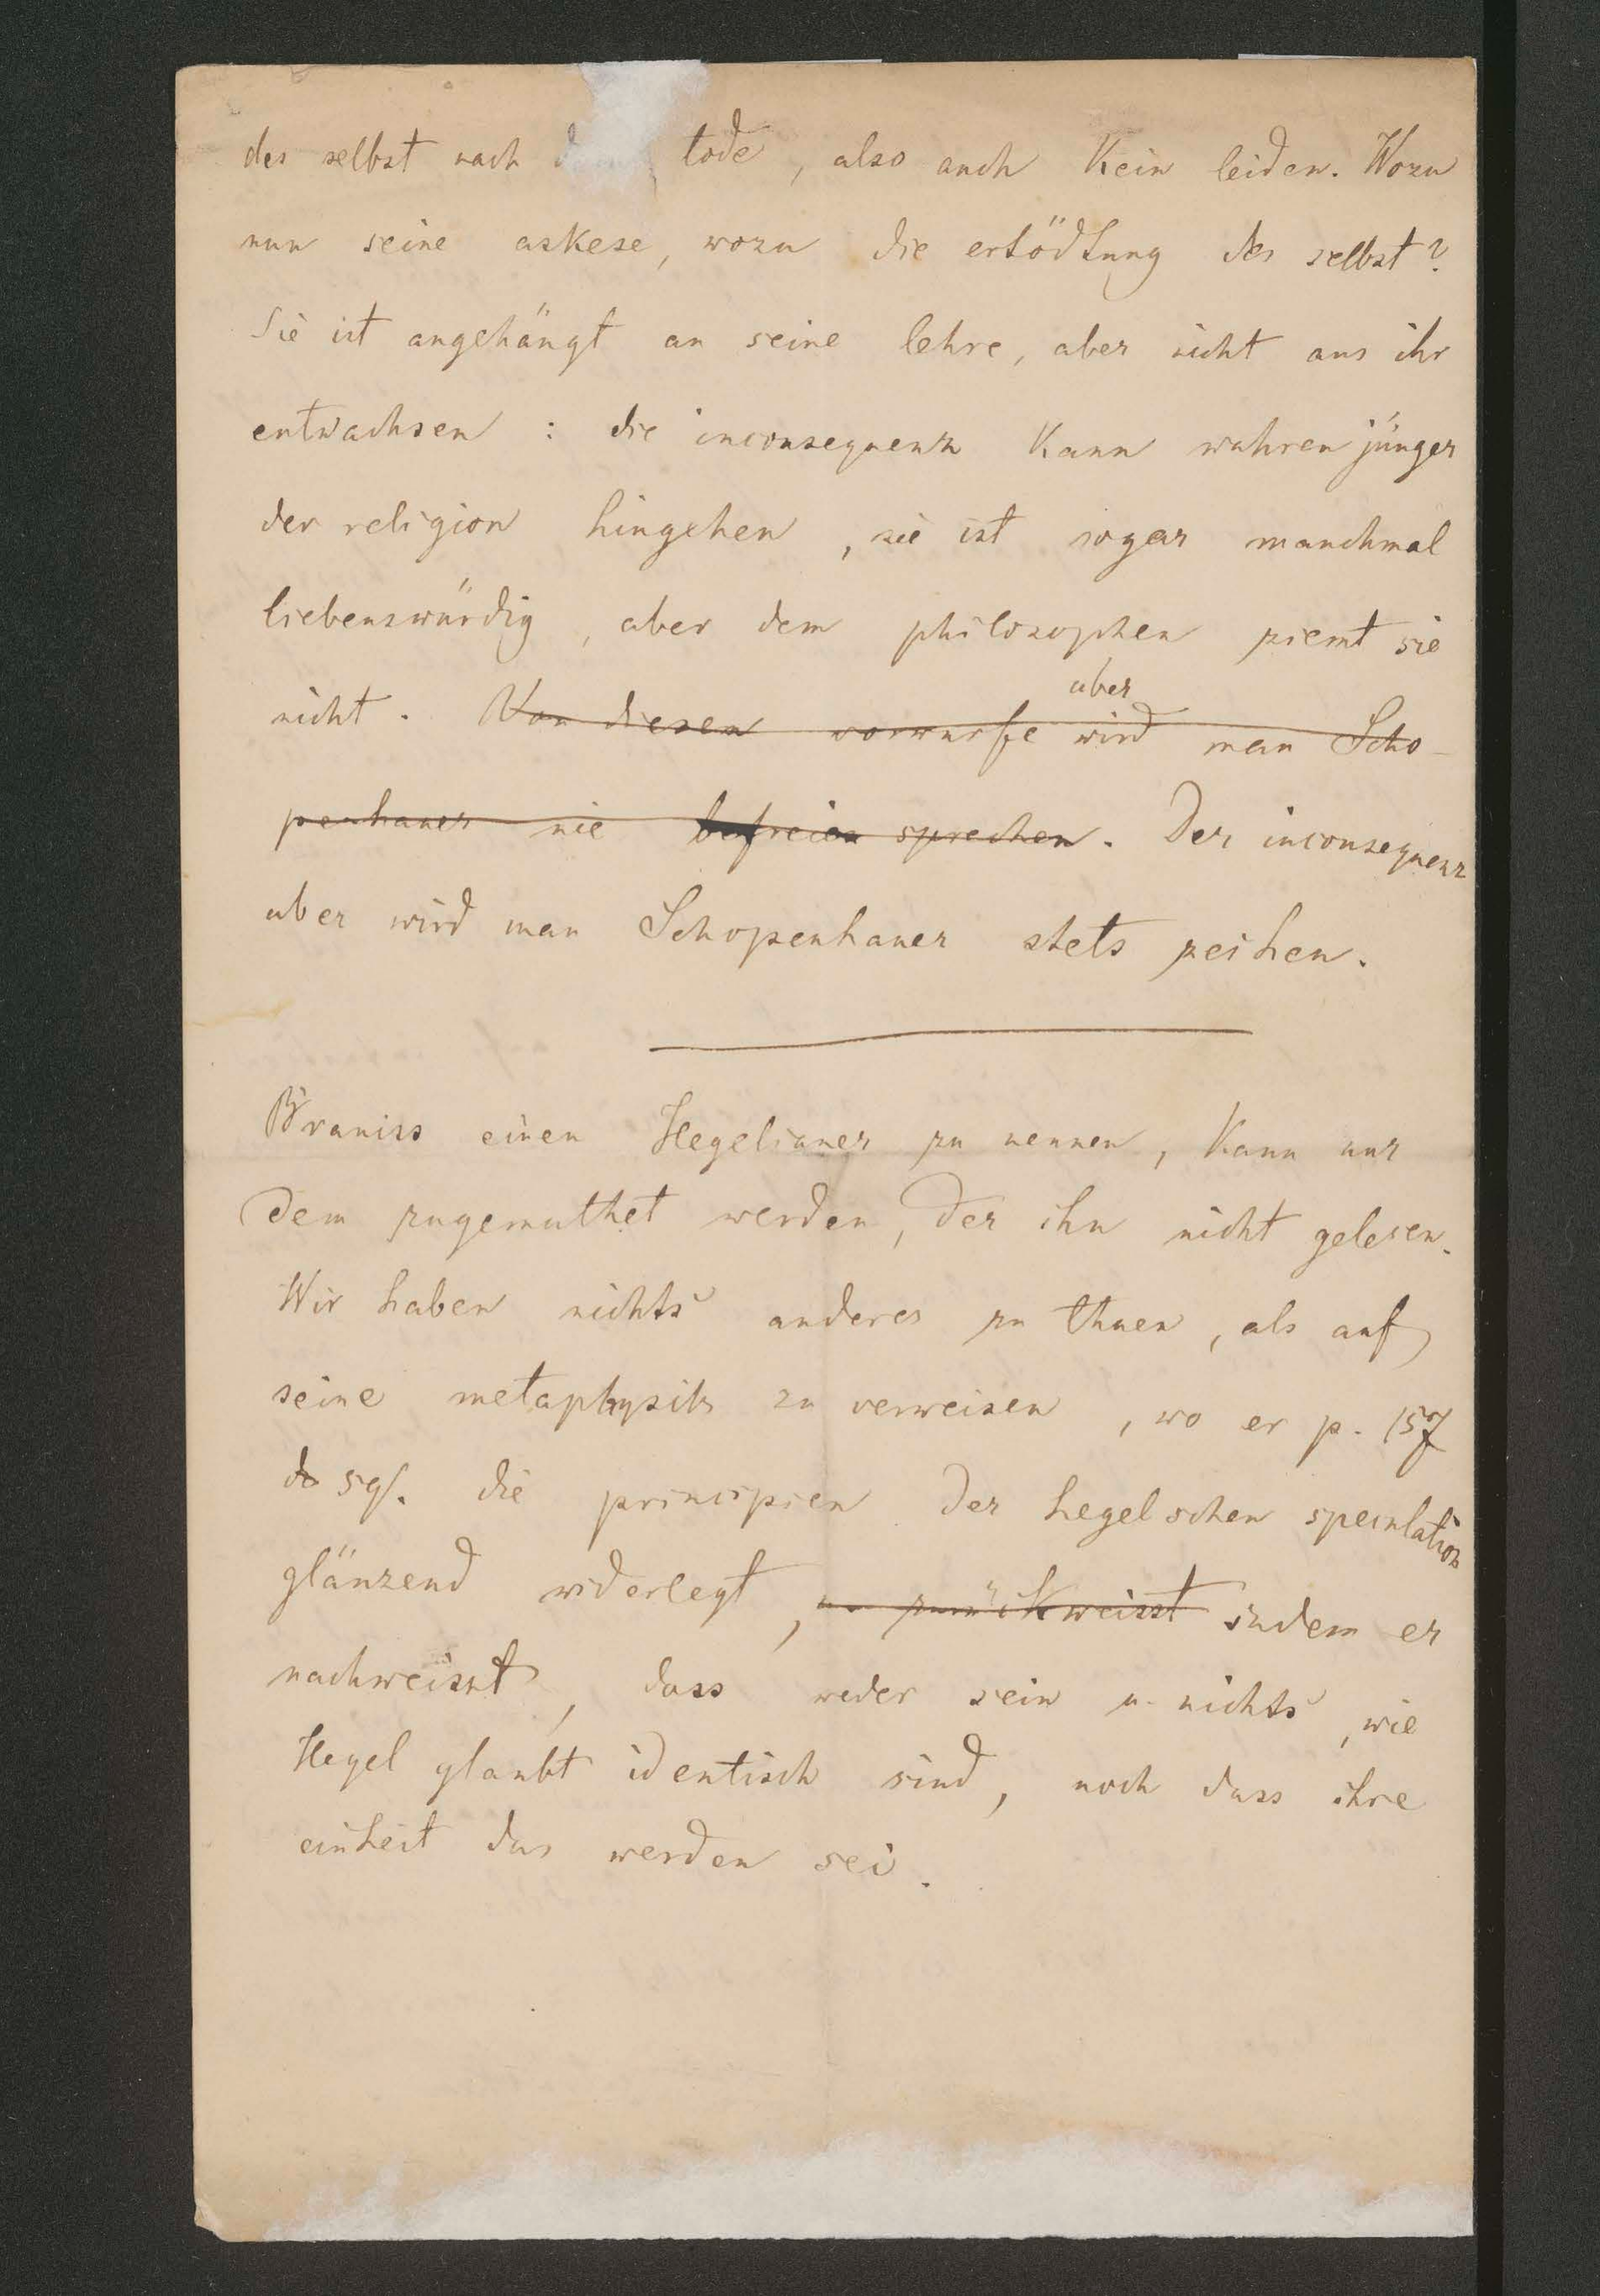 des selbst nach d tode, also auch kein leiden. Wozu
nun seine askese, wozu die ertödtung des selbst?
Sie ist angehängt an seine lehre, aber nicht aus ihr
entwachsen : die inconsequenz kann wahren jünger
der religion hingehen, sie ist sogar manchmal
liebenswürdig, aber dem philosophen ziemt sie
aber
nicht. Von diesen vorwurfe wird man Scho-
penhauer nie befreien sprechen. Der inconsequenz
aber wird man Schopenhauer stets zeihen.
Braniss einen Hegelianer zu nennen, kann nur
dem zugemuthet werden, der ihn nicht gelesen.
Wir haben nichts anderes zu thuen, als auf
seine metaphysik zu verweisen, wo er p. 157
sq. die principien der hegelschen speculation
glänzend widerlegt, zurückweisst indem er
nachweisst, dass weder sein u. nichts, wie
Hegel glaubt identisch sind, noch dass ihre
einheit das werden sei.